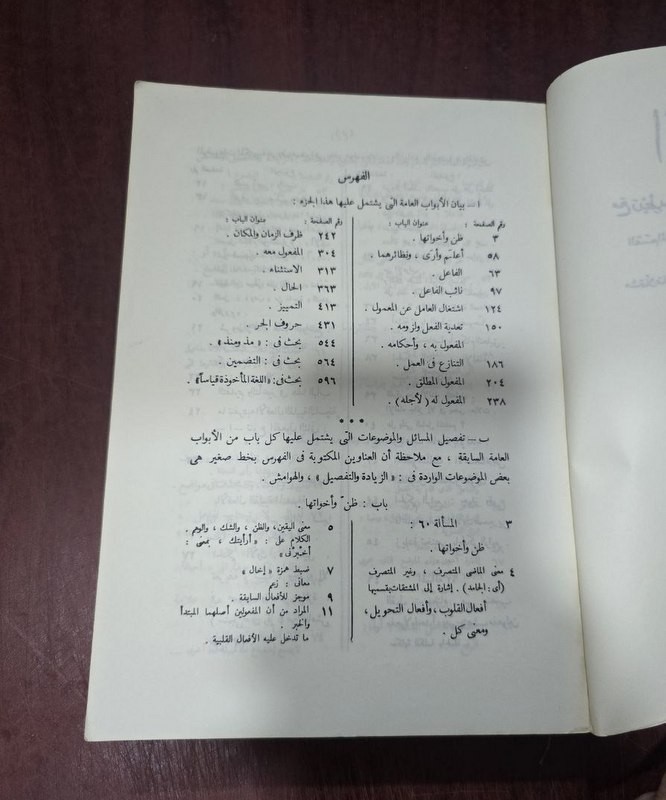 الفهرس
ا — بيان الأبواب العامة التى يشتمل عليها هذا الجزء :
رقم الصفحة : عنوان الباب :
٣ ظن وأخواتها .
٥٨ أعلم وأرى ، ونظائرهما .
٦٣ الفاعل .
٩٧ نائب الفاعل .
١٢٤ اشتغال العامل عن المعمول .
١٥٠ تعدية الفعل ولزومه .
المفعول به ، وأحكامه .
١٨٦ التنازع فى العمل .
٢٠٤ المفعول المطلق .
٢٣٨ المفعول له ( لأجله ) .
رقم الصفحة : عنوان الباب :
٢٤٢ ظرف الزمان والمكان .
٣٠٤ المفعول معه .
٣١٣ الاستثناء .
٣٦٣ الحال .
٤١٣ التمييز .
٤٣١ حروف الجر .
٥٤٤ بحث فى : « مذ ومنذ » .
٥٦٤ بحث فى : التضمين .
٥٩٦ بحث فى : « اللغة المأخوذة قياساً » .
ب — تفصيل المسائل والموضوعات التى يشتمل عليها كل باب من الأبواب
العامة السابقة ، مع ملاحظة أن العناوين المكتوبة فى الفهرس بخط صغير هى
بعض الموضوعات الواردة فى : « الزيادة والتفصيل » ، والهوامش .
باب : ظنّ وأخواتها .
٣ المسألة ٦٠ :
ظن وأخواتها .
٤ معنى الماضى المتصرف ، وغير المتصرف
(أى: الجامد) . إشارة إلى المشتقات بقسميها
أفعال القلوب ، وأفعال التحويل ،
ومعنى كل .
٥ معنى اليقين ، والظن ، والشك ، والوهم .
الكلام على : « أرأيتك ، بمعنى :
أخبرنى »
٧ ضبط همزة « إخال »
معانى : زعم
٩ موجز للأفعال السابقة .
١١ المراد من أن المفعولين أصلهما المبتدأ
والخبر .
ما تدخل عليه الأفعال القلبية .